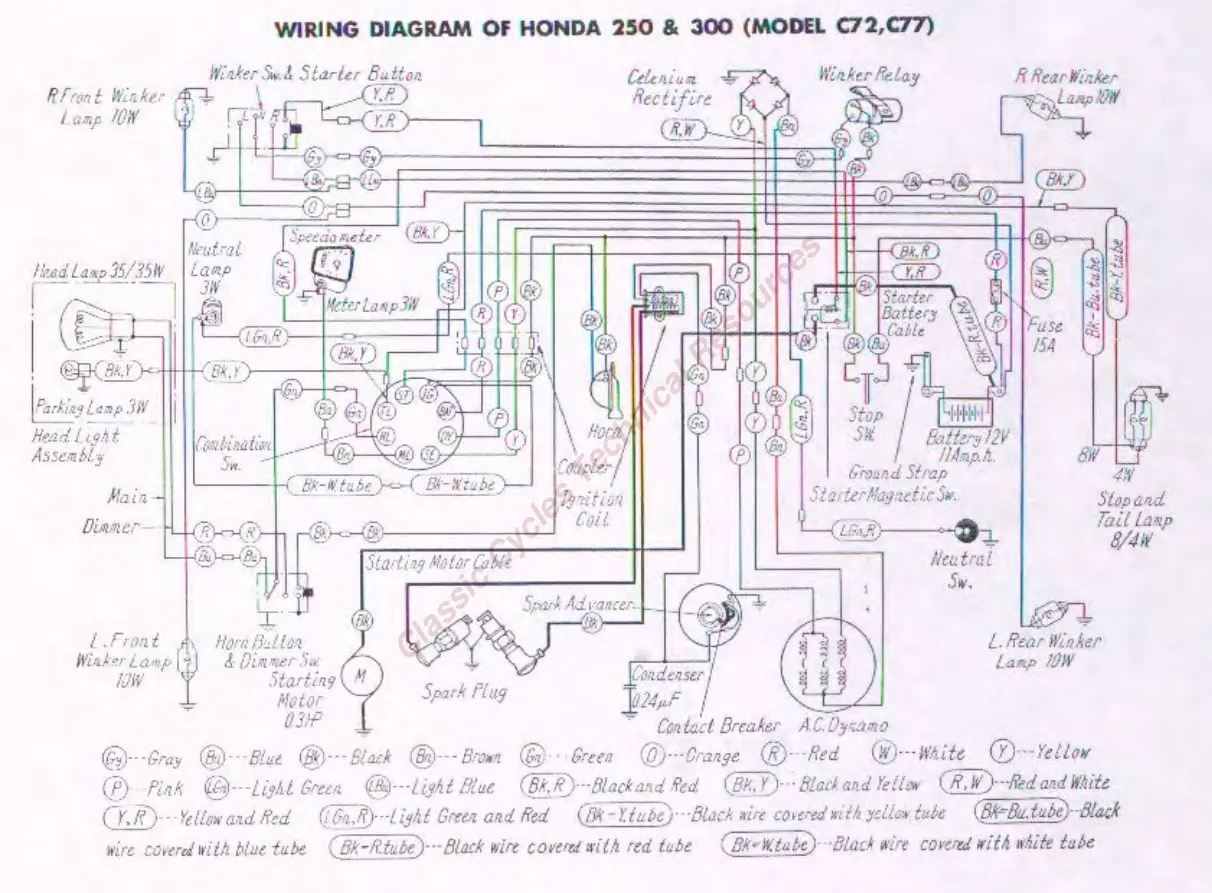 WIRING DIAGRAM OF HONDA 250 & 300 (MODEL C72,C77)
Winker Sw.& Starter Button
R.Front Winker
Lamp 10W
L N R
Y,R
Y,R
Celenium
Rectifire
R,W
Y
Bn
Winker Relay
Gy
Bk
Bk
R.Rear Winker
Lamp 10W
Gy
Gy
Bu
LGn
LBu
O
O
LBu
LBu
O
O
Bk,Y
Speedometer
Bk,Y
Neutral
Lamp
3W
Bk,R
Meter Lamp 3W
LGn,R
LGn,R
P
R
Bk
Y
Bk
Bk
Bk
P
Bk
Bk,R
Y,R
Bk
Starter
Battery
Cable
Bu
R
R,W
R
Fuse
15A
Bk-R.tube
Bk-Bu.tube
Bk-Y.tube
Head Lamp 35/35W
Bk,Y
Bk,Y
Bk,Y
Parking Lamp 3W
Head Light
Assembly
Combination
Sw.
Gn
Gn
Bn
Bn
TL
ST
IG
BAT
DY
SE
ML
HL
R
Bk
P
Y
Horn
Coupler
Ignition
Coil
Gn
Gn
Y
Y
P
Bn
Bn
LGn,R
Bk
Bu
Stop
SW.
Ground Strap
Starter Magnetic Sw.
Battery 12V
11Amp.h.
8W
4W
Stop and
Tail Lamp
8/4W
Bk-W.tube
Bk-W.tube
Main
Dimmer
R
R
Bk
Bk
Bu
Bu
Starting Motor Cable
LGn,R
Neutral
Sw.
Bk
Spark Advancer
Bk
L.Front
Winker Lamp
10W
Horn Button
& Dimmer Sw.
Starting
Motor
0.3HP
M
Spark Plug
Condenser
0.24μF
Contact Breaker
A.C.Dynamo
L.Rear Winker
Lamp 10W
Classic Cycles Technical Resources
Gy---Gray Bu---Blue Bk---Black Bn---Brown Gn---Green O---Orange R---Red W---White Y---Yellow
P---Pink LGn---Light Green LBu---Light Blue Bk,R---Black and Red Bk,Y---Black and Yellow R,W---Red and White
Y,R---Yellow and Red LGn,R---Light Green and Red Bk-Y.tube---Black wire covered with yellow tube Bk-Bu.tube--Black
wire covered with blue tube Bk-R.tube---Black wire covered with red tube Bk-W.tube---Black wire covered with white tube